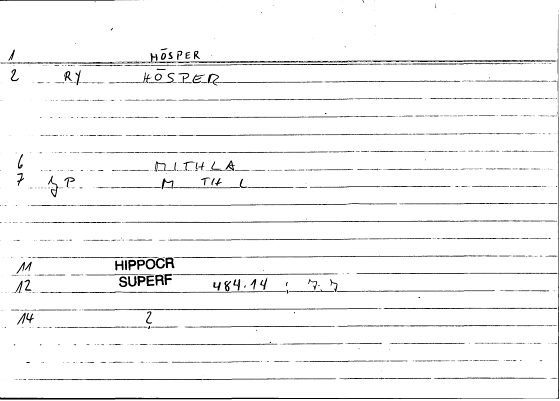 1 HŌSPER
2 RY HŌSPER
6 MITHLA
7 P M TH L
11 HIPPOCR
12 SUPERF 484.14 ; 7.7
14 ?